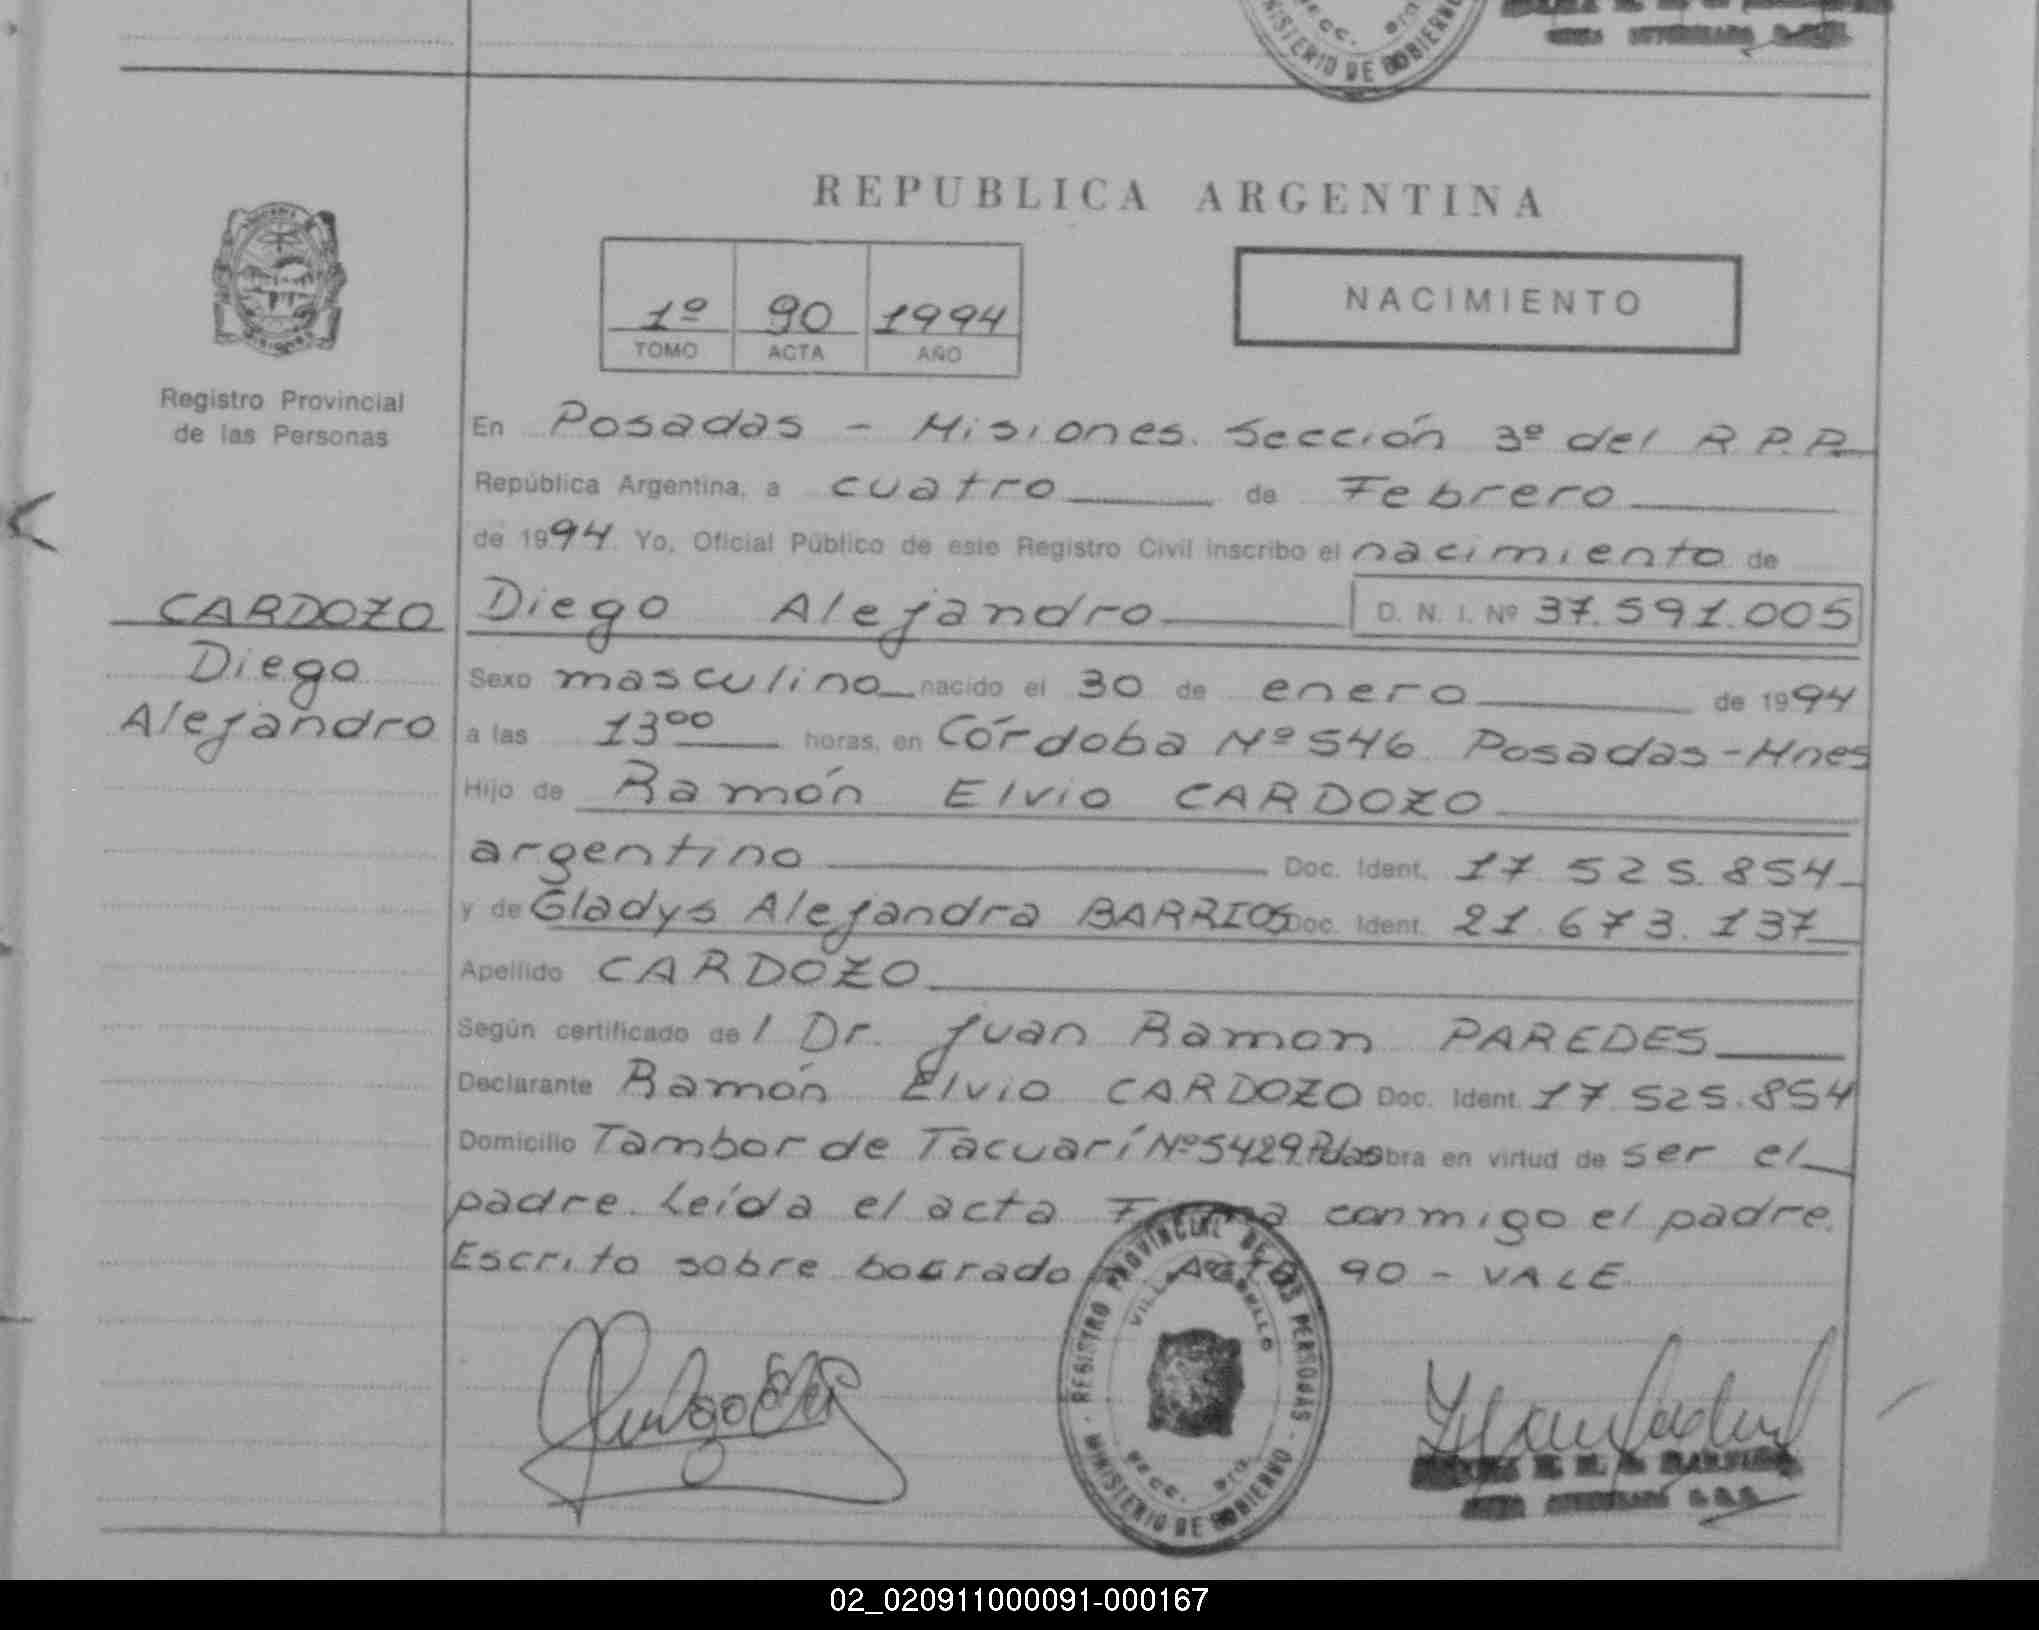 MINISTERIO DE GOBIERNO
SECC. 3ra.
REPUBLICA ARGENTINA
1º 90 1994
TOMO ACTA AÑO
NACIMIENTO
Registro Provincial
de las Personas
En Posadas - Misiones. Sección 3º del R.P.P.
República Argentina, a cuatro de Febrero
de 1994 Yo, Oficial Público de este Registro Civil inscribo el nacimiento de
CARDOZO
Diego
Alejandro
Diego Alejandro D. N. I. Nº 37.591.005
Sexo masculino nacido el 30 de enero de 1994
a las 1300 horas, en Córdoba Nº 546 Posadas-Mnes
Hijo de Ramón Elvio CARDOZO
argentino Doc. Ident. 17.525.854
y de Gladys Alejandra BARRIOS Doc. Ident. 21.673.137
Apellido CARDOZO
Según certificado de l Dr. Juan Ramon PAREDES
Declarante Ramón Elvio CARDOZO Doc. Ident. 17.525.854
Domicilio Tambor de Tacuarí Nº 5429 Pdas obra en virtud de ser el
padre. Leída el acta Firma conmigo el padre.
Escrito sobre borrado 90 - VALE
REGISTRO PROVINCIAL DE LAS PERSONAS
SECC. 3ra.
MINISTERIO DE GOBIERNO
02_020911000091-000167